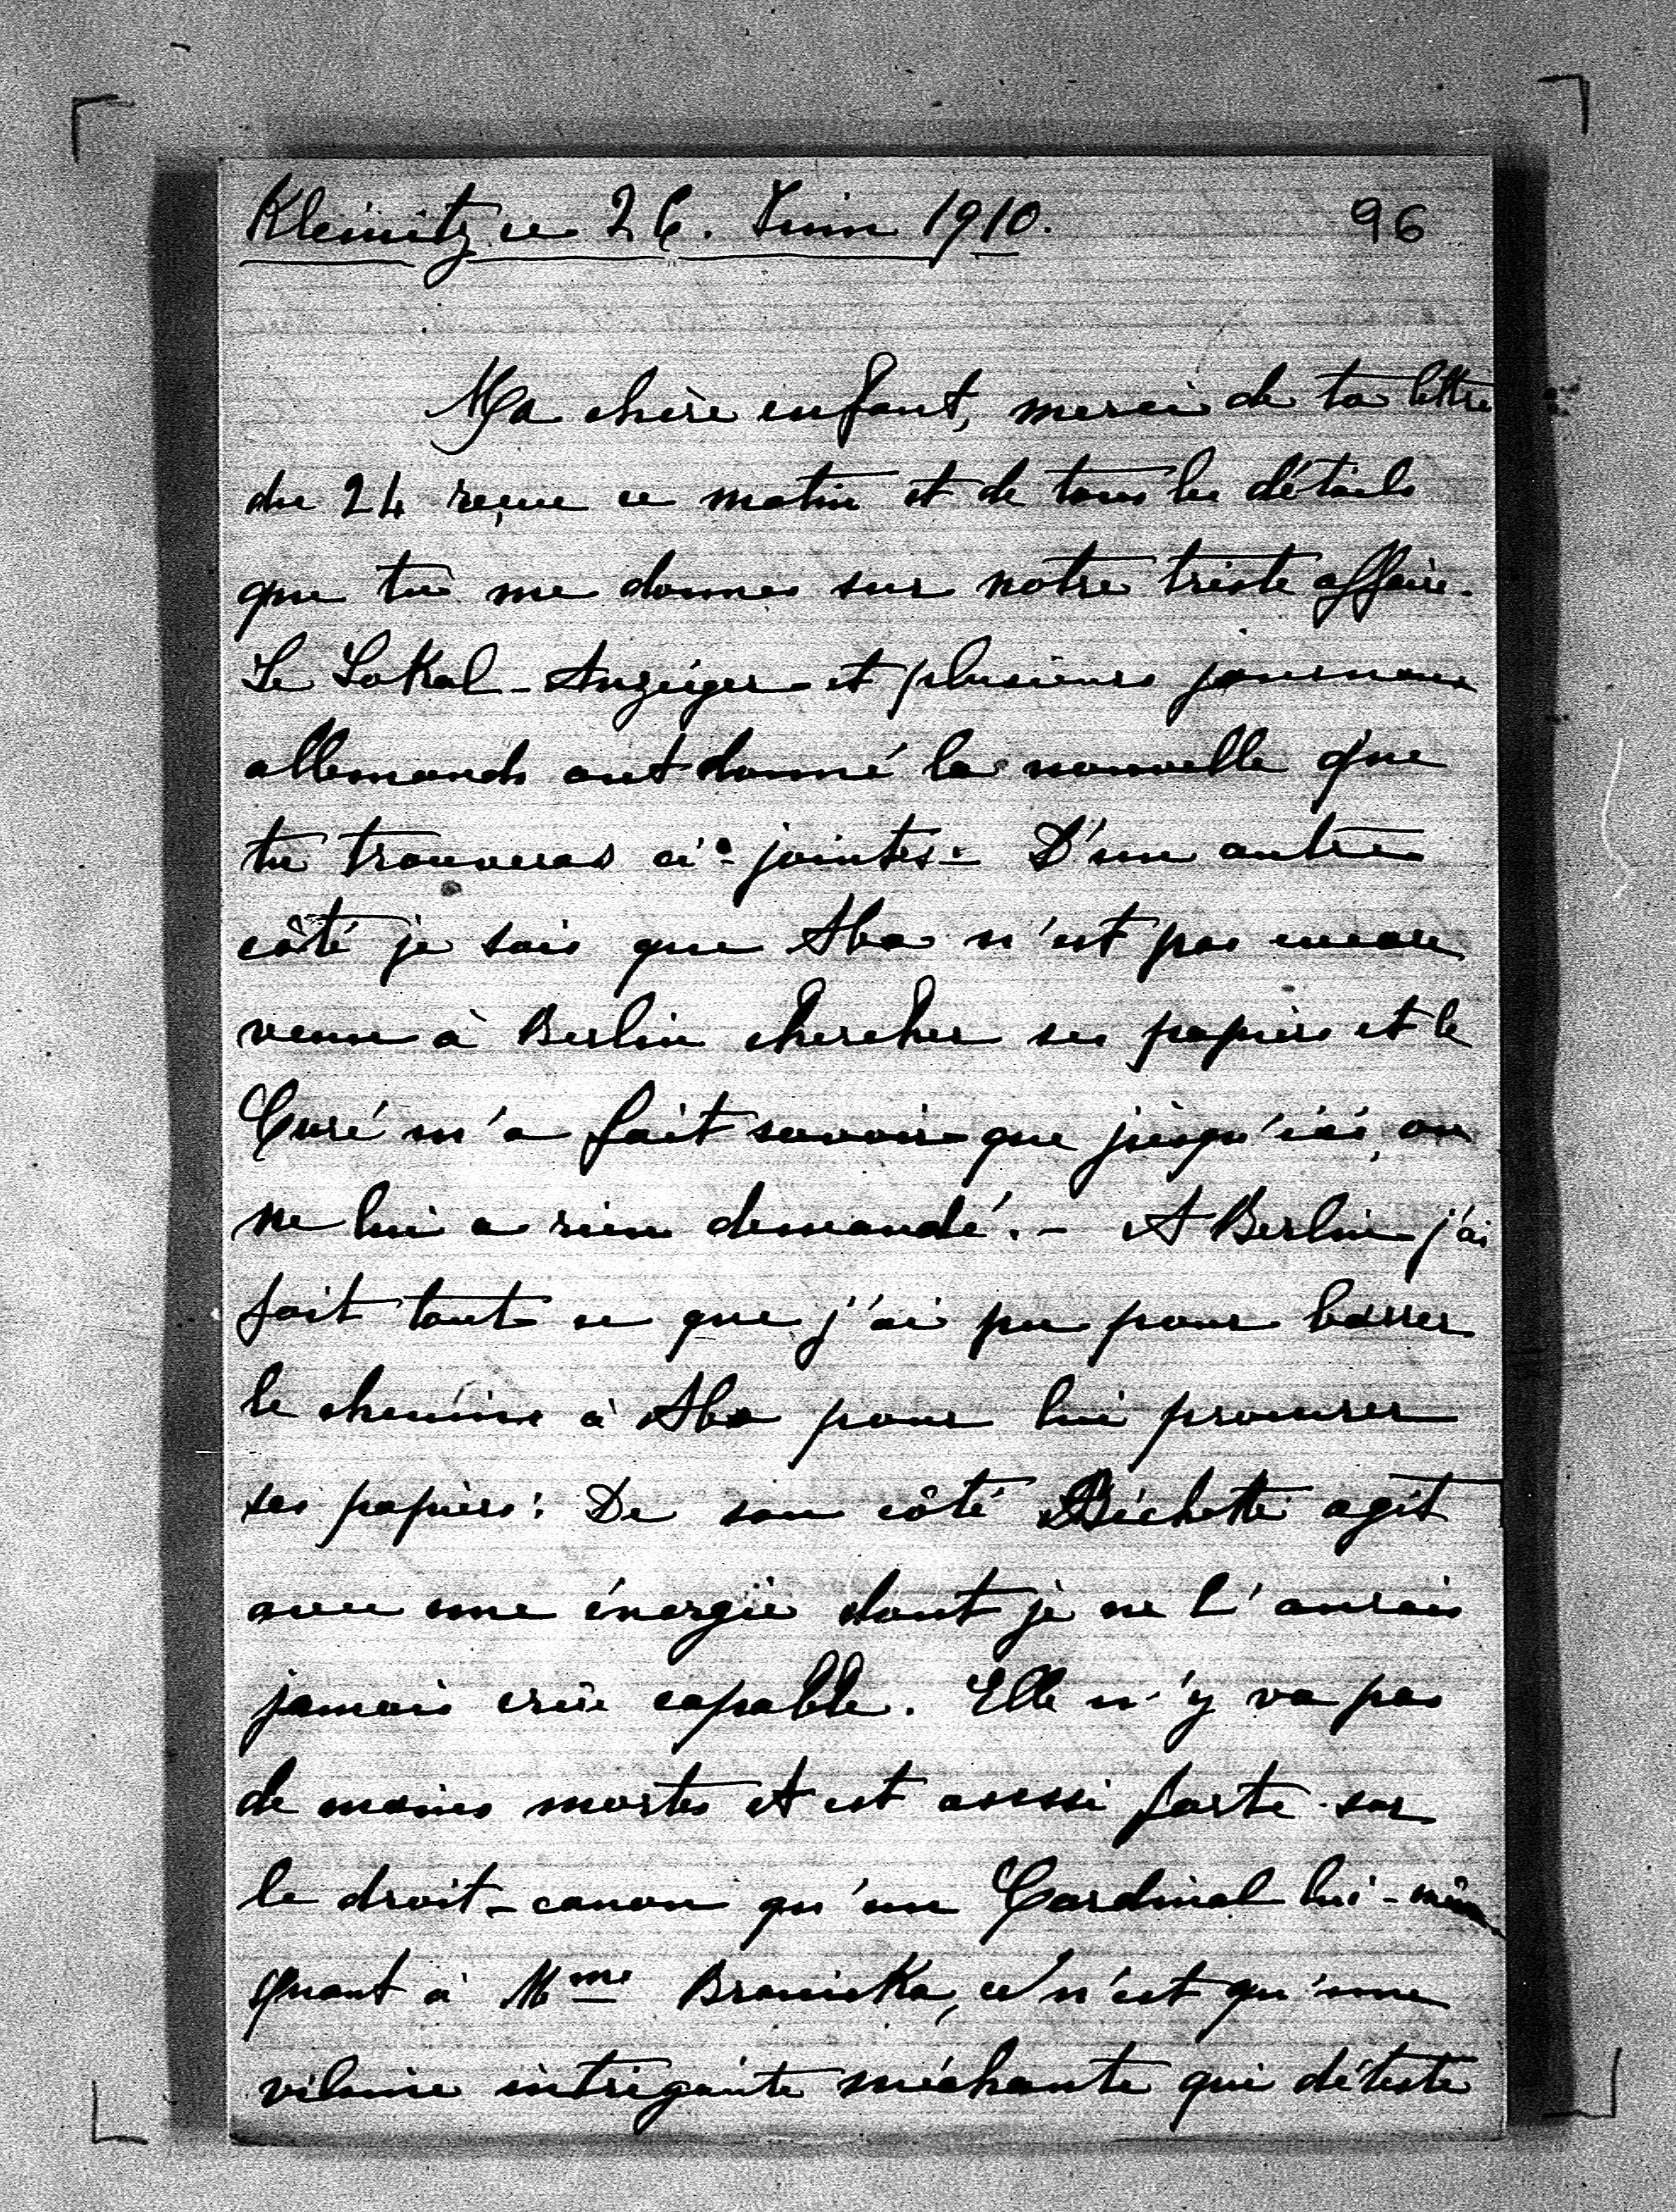 Kleinitz ce 26. Juin 1910. 96
Ma chère enfant, merci de ta lettre
du 24 reçue ce matin et de tous les détails
que tu me donnes sur notre triste affaire.
Le Lokal-Anzeiger et plusieurs journaux
allemands ont donné la nouvelle que
tu trouveras ci-jointes. - D'un autre
côté je sais que Aba n'est pas encore
venu à Berlin chercher ses papiers et le
Curé m'a fait savoir que jusqu'ici, on
ne lui a rien demandé. - A Berlin j'ai
fait tout ce que j'ai pu pour barrer
le chemin à Aba pour lui procurer
ses papiers: De son côté Bichette agit
avec une énergie dont je ne l'aurais
jamais crue capable. Elle n'y va pas
de mains mortes et est aussi forte sur
le droit-canon qu'un Cardinal lui-même
quant à Mme Branicka, ce n'est qu'une
vilaine intrigante méchante qui déteste